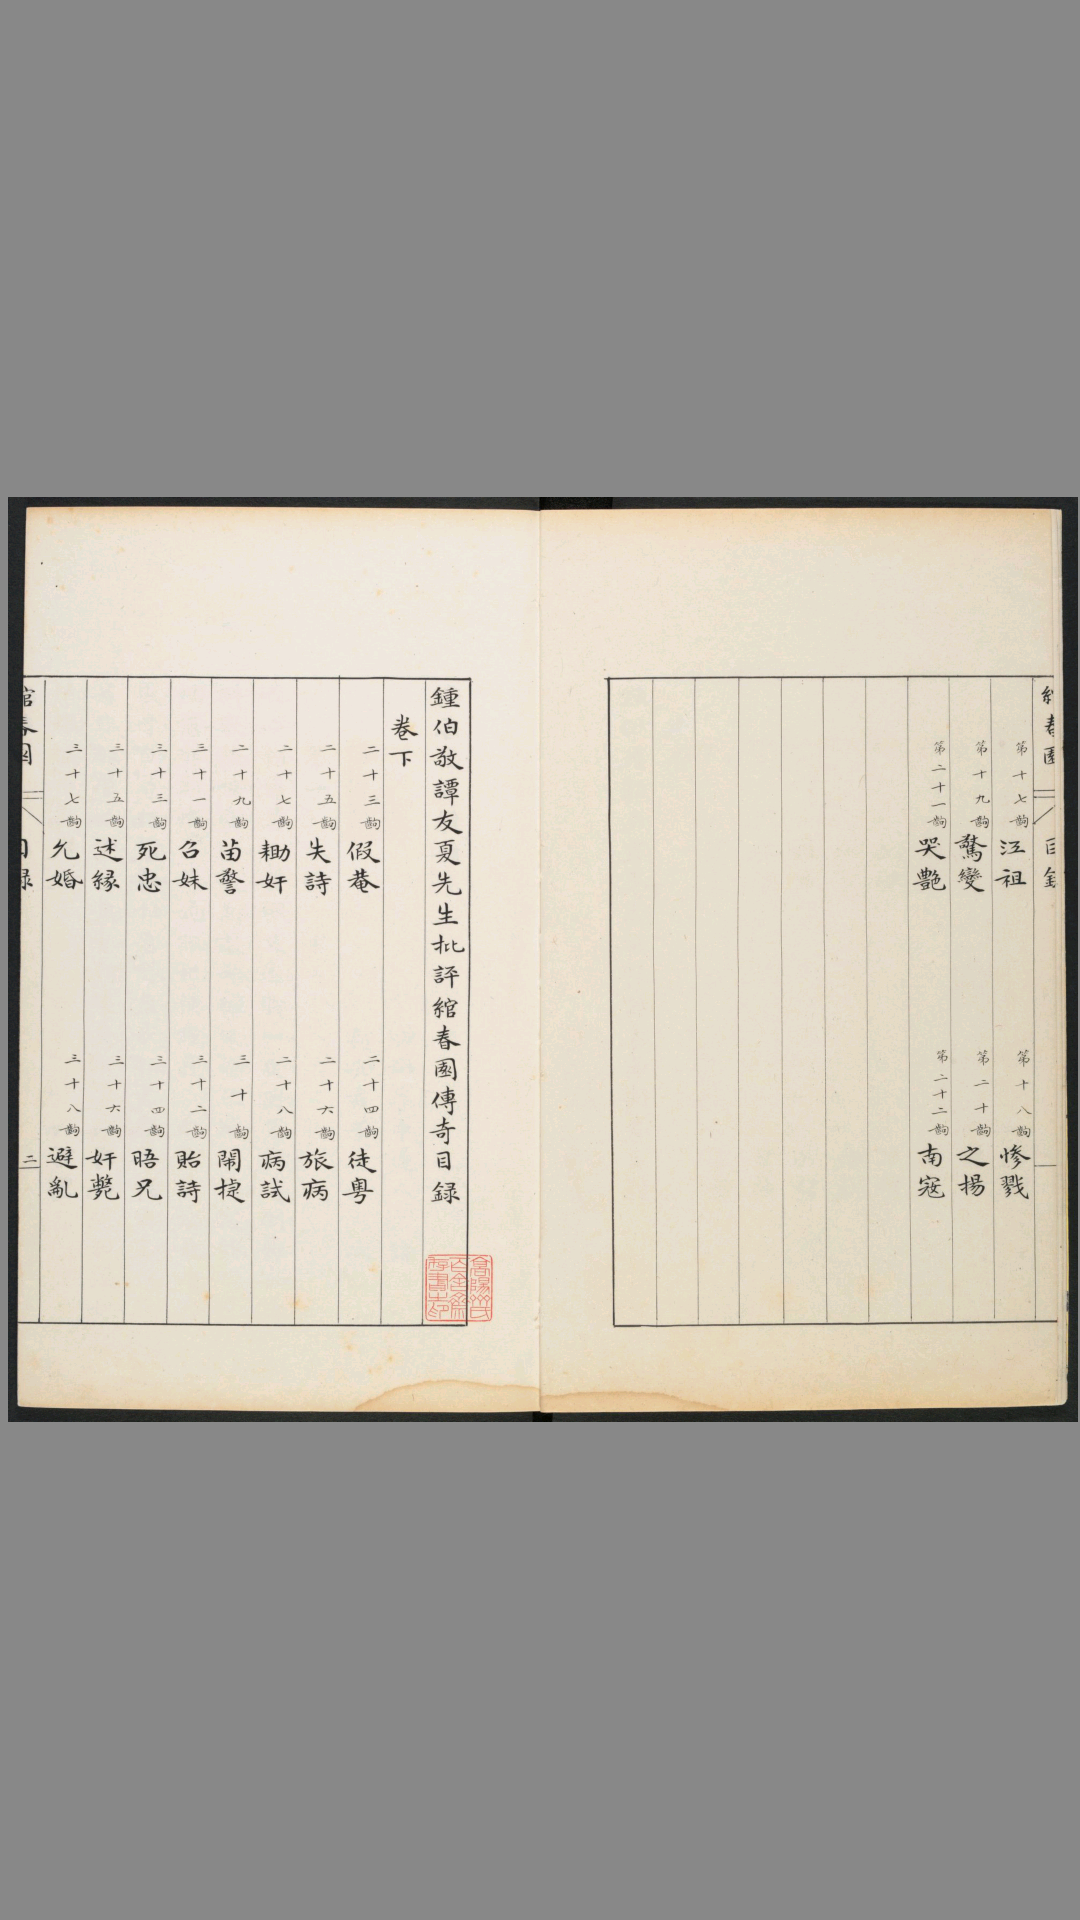 綰春園 目錄
第十七齣 江祖 第十八齣 慘戮
第十九齣 驚變 第二十齣 之揚
第二十一齣 哭艷 第二十二齣 南寇
鍾伯敬譚友夏先生批評綰春園傳奇目録
卷下
二十三齣 假菴 二十四齣 徒粵
二十五齣 失詩 二十六齣 旅病
二十七齣 耡奸 二十八齣 病試
二十九齣 苗警 三十齣 鬧捷
三十一齣 召妹 三十二齣 貽詩
三十三齣 死忠 三十四齣 晤兄
三十五齣 述緣 三十六齣 奸斃
三十七齣 允婚 三十八齣 避亂
綰春園 目録 二